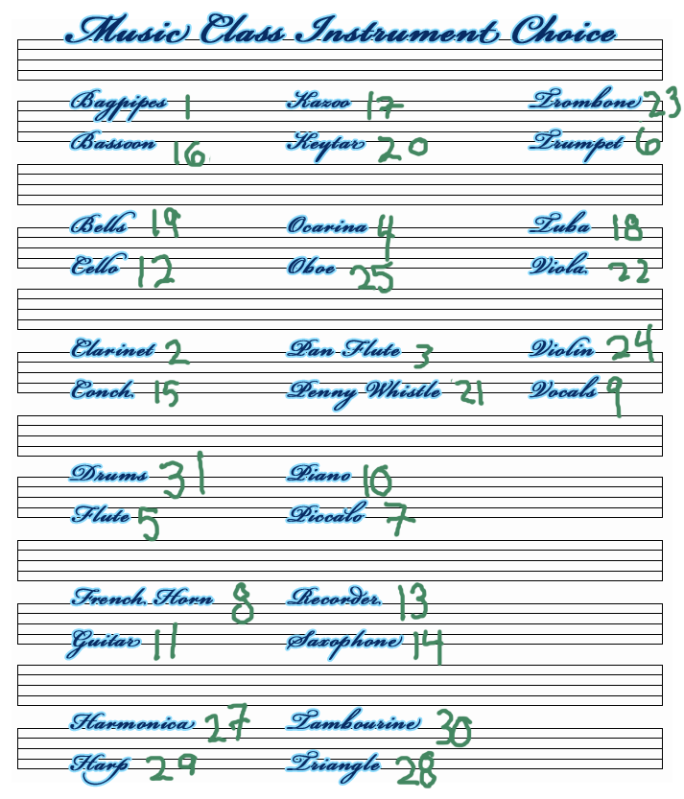 Music Class Instrument Choice
Bagpipes 1 Kazoo 17 Trombone 23
Bassoon 16 Keytar 20 Trumpet 6
Bells 19 Ocarina 4 Tuba 18
Cello 12 Oboe 25 Viola 22
Clarinet 2 Pan Flute 3 Violin 24
Conch 15 Penny Whistle 21 Vocals 9
Drums 31 Piano 10
Flute 5 Piccalo 7
French Horn 8 Recorder 13
Guitar 11 Saxophone 14
Harmonica 27 Tambourine 30
Harp 29 Triangle 28